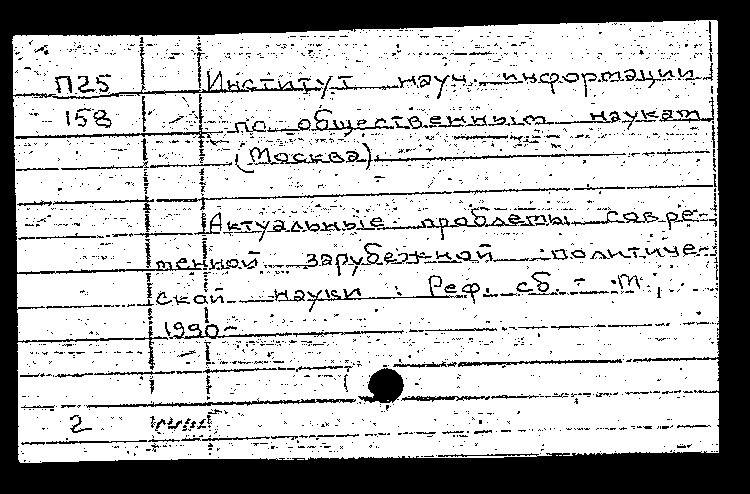 П25
158
Институт науч. информации
по общественным наукам
(Москва).
Актуальные проблемы совре-
менной зарубежной политиче-
ской науки : Реф. сб. - М.,
1990-
2